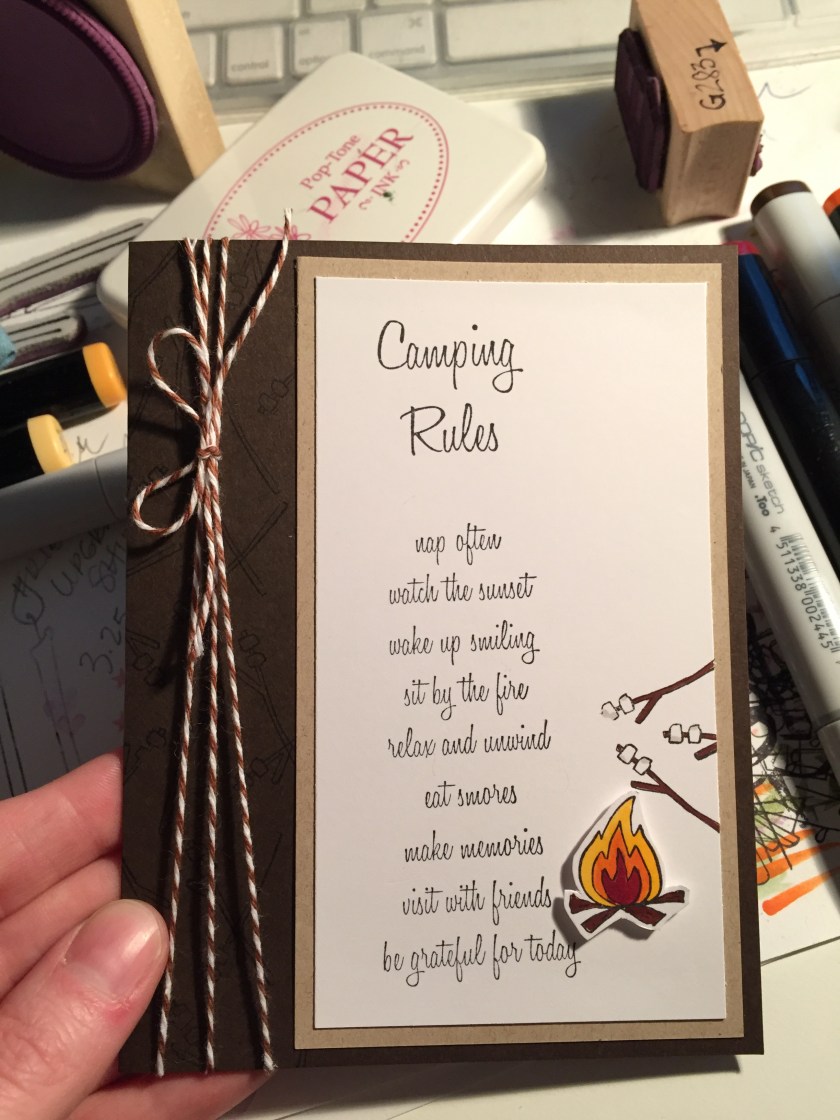 control
option
command
G2857
Pop-Tone
PAPER
INK
Camping
Rules
nap often
watch the sunset
wake up smiling
sit by the fire
relax and unwind
eat smores
make memories
visit with friends
be grateful for today
COPIC sketch
.Too
4 511338 002445
3.25